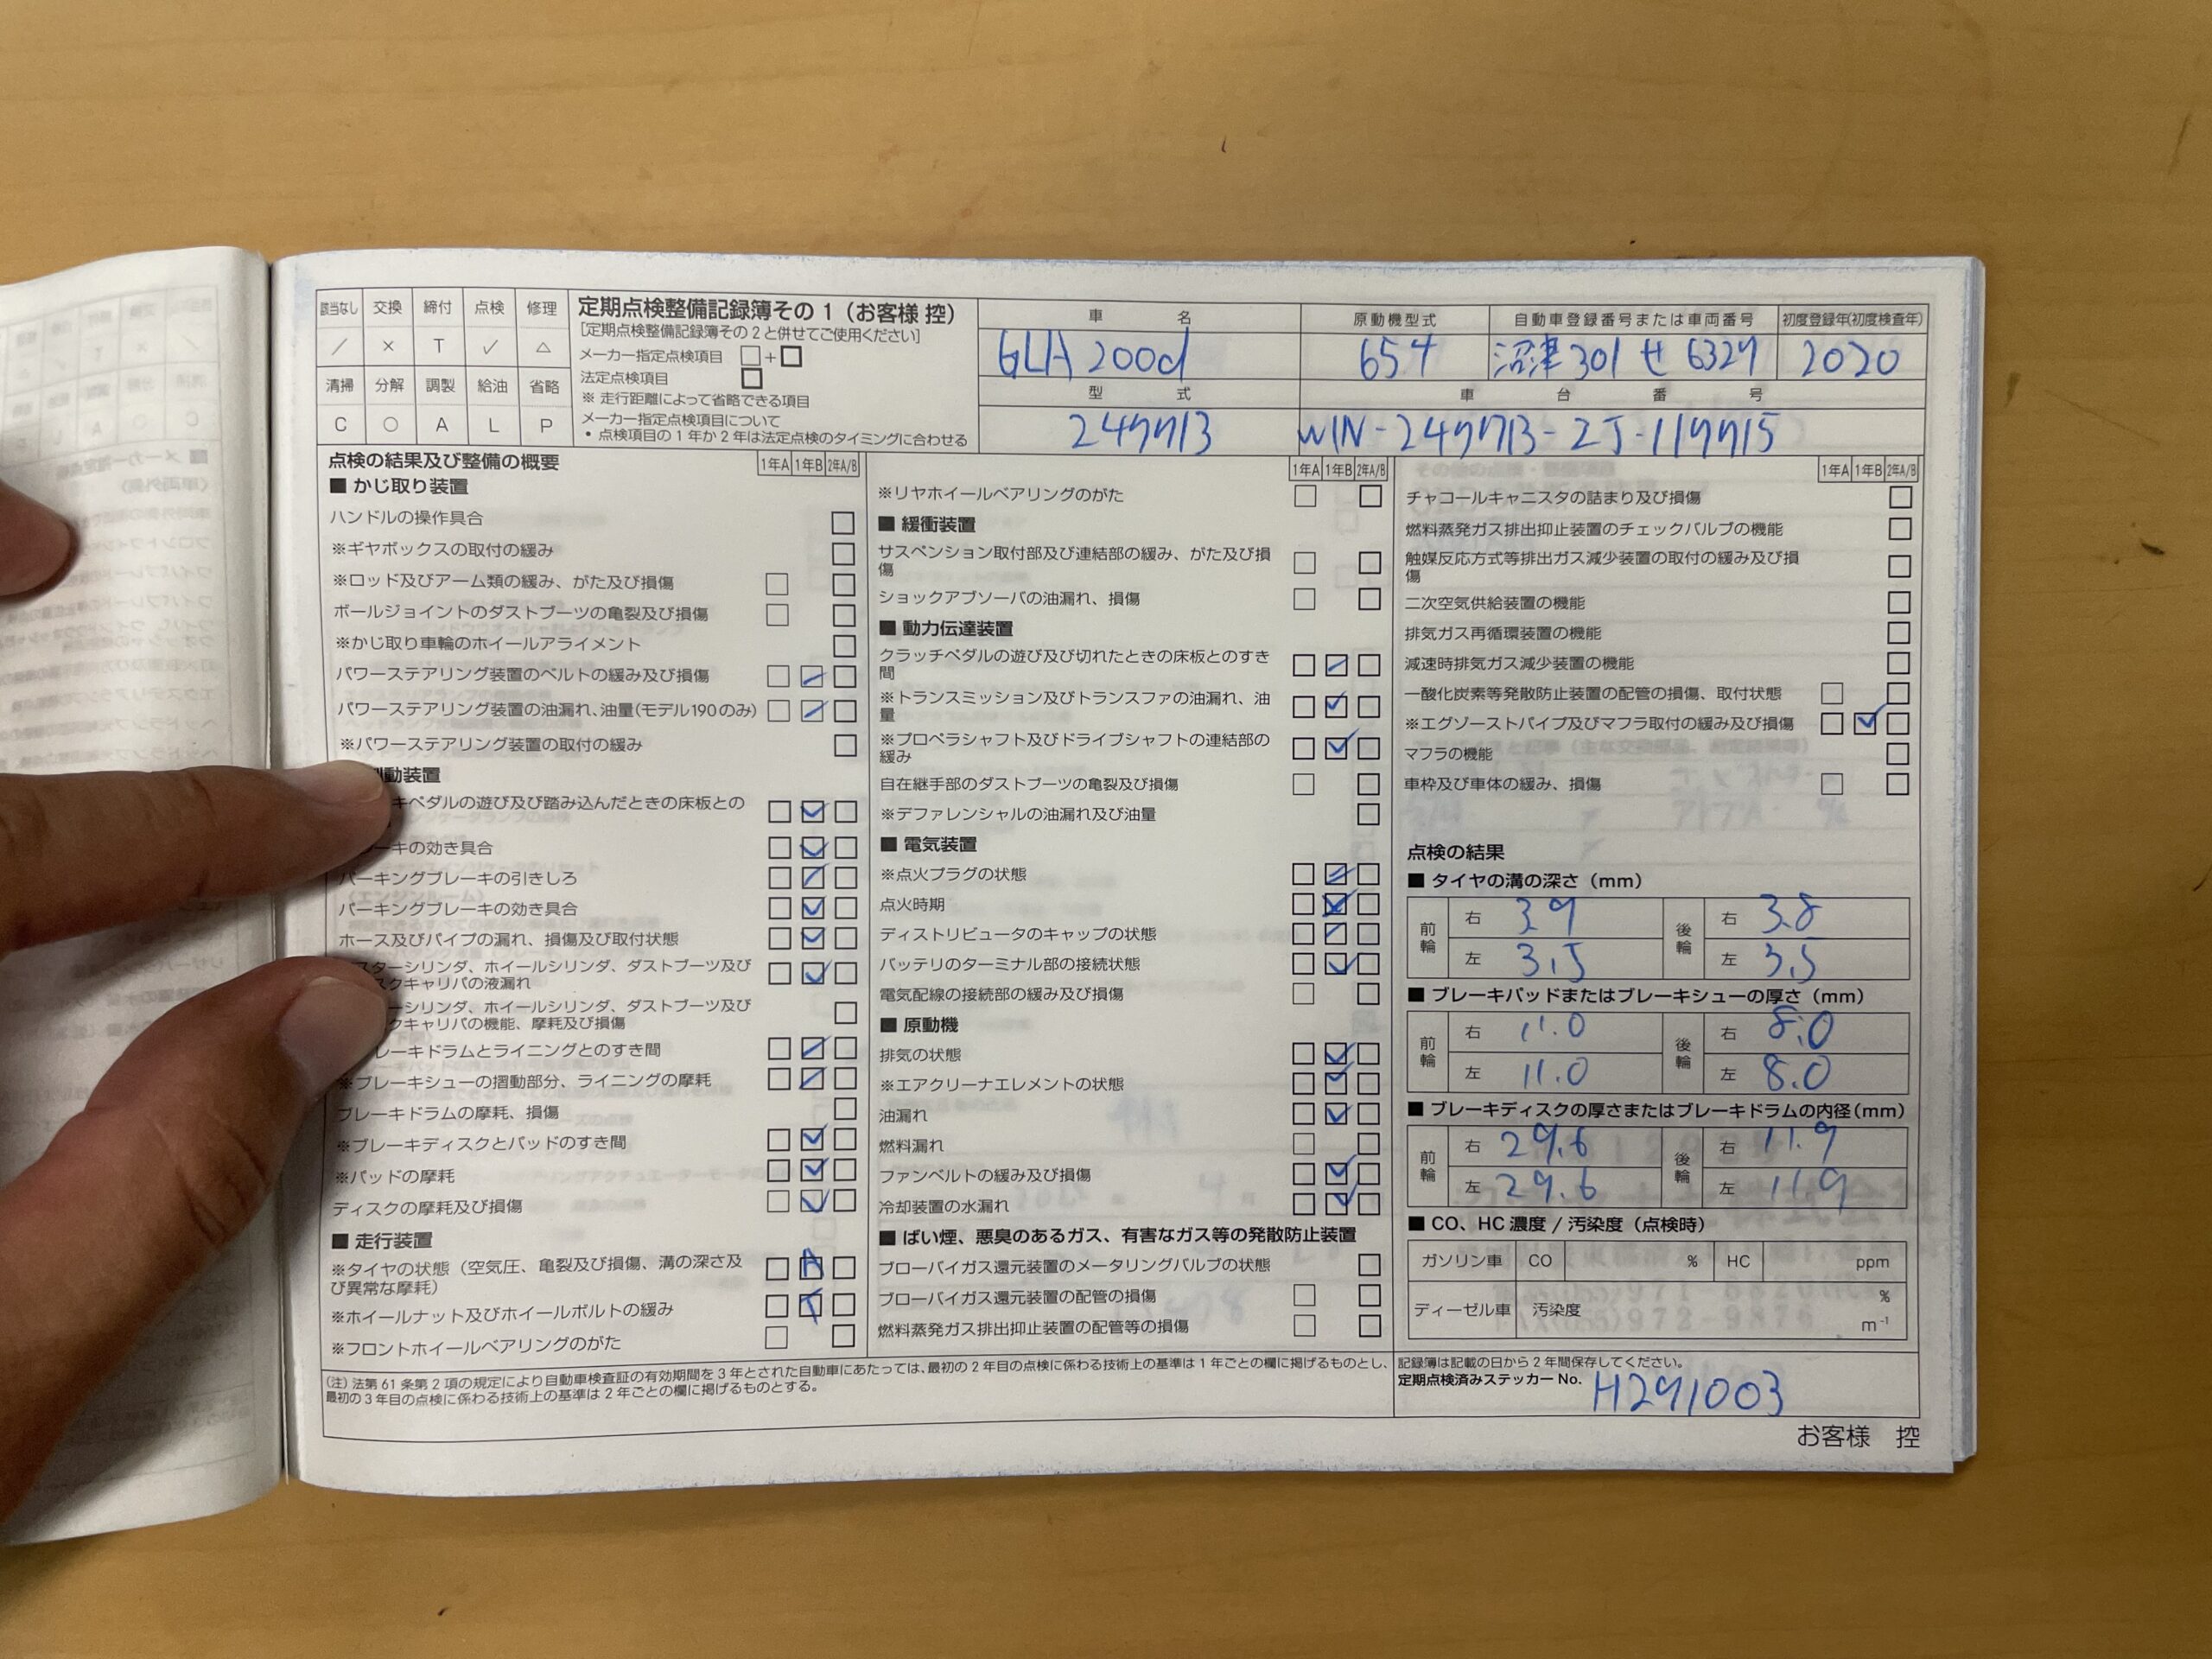 該当なし 交換 締付 点検 修理
／ × T ✓ △
清掃 分解 調製 給油 省略
C ○ A L P
定期点検整備記録簿その1（お客様 控）
[定期点検整備記録簿その2と併せてご使用ください]
メーカー指定点検項目 □+□
法定点検項目 □
※ 走行距離によって省略できる項目
メーカー指定点検項目について
• 点検項目の1年か2年は法定点検のタイミングに合わせる
車 名 原動機型式 自動車登録番号または車両番号 初度登録年(初度検査年)
GLA 200d 654 沼津 301 せ 6329 2020
型 式 車 台 番 号
点検の結果及び整備の概要 1年A 1年B 2年A/B
■ かじ取り装置
ハンドルの操作具合
※ギヤボックスの取付の緩み
※ロッド及びアーム類の緩み、がた及び損傷
ボールジョイントのダストブーツの亀裂及び損傷
※かじ取り車輪のホイールアライメント
パワーステアリング装置のベルトの緩み及び損傷 ／
パワーステアリング装置の油漏れ、油量(モデル190のみ) ／
※パワーステアリング装置の取付の緩み
動装置
キペダルの遊び及び踏み込んだときの床板との ✓
ーキの効き具合 ✓
パーキングブレーキの引きしろ ／
パーキングブレーキの効き具合 ✓
ホース及びパイプの漏れ、損傷及び取付状態 ✓
スターシリンダ、ホイールシリンダ、ダストブーツ及び ✓
スクキャリパの液漏れ
ーシリンダ、ホイールシリンダ、ダストブーツ及び
クキャリパの機能、摩耗及び損傷
レーキドラムとライニングとのすき間 ／
※ブレーキシューの摺動部分、ライニングの摩耗 ／
ブレーキドラムの摩耗、損傷
※ブレーキディスクとパッドのすき間 ✓
※パッドの摩耗 ✓
ディスクの摩耗及び損傷 ✓
■ 走行装置
※タイヤの状態（空気圧、亀裂及び損傷、溝の深さ及 A
び異常な摩耗）
※ホイールナット及びホイールボルトの緩み T
※フロントホイールベアリングのがた
1年A 1年B 2年A/B
※リヤホイールベアリングのがた
■ 緩衝装置
サスペンション取付部及び連結部の緩み、がた及び損
傷
ショックアブソーバの油漏れ、損傷
■ 動力伝達装置
クラッチペダルの遊び及び切れたときの床板とのすき ／
間
※トランスミッション及びトランスファの油漏れ、油 ✓
量
※プロペラシャフト及びドライブシャフトの連結部の ✓
緩み
自在継手部のダストブーツの亀裂及び損傷
※デファレンシャルの油漏れ及び油量
■ 電気装置
※点火プラグの状態
点火時期
ディストリビュータのキャップの状態 ／
バッテリのターミナル部の接続状態 ✓
電気配線の接続部の緩み及び損傷
■ 原動機
排気の状態 ✓
※エアクリーナエレメントの状態 ✓
油漏れ ✓
燃料漏れ
ファンベルトの緩み及び損傷 ✓
冷却装置の水漏れ ✓
■ ばい煙、悪臭のあるガス、有害なガス等の発散防止装置
ブローバイガス還元装置のメータリングバルブの状態
ブローバイガス還元装置の配管の損傷
燃料蒸発ガス排出抑止装置の配管等の損傷
1年A 1年B 2年A/B
チャコールキャニスタの詰まり及び損傷
燃料蒸発ガス排出抑止装置のチェックバルブの機能
触媒反応方式等排出ガス減少装置の取付の緩み及び損
傷
二次空気供給装置の機能
排気ガス再循環装置の機能
減速時排気ガス減少装置の機能
一酸化炭素等発散防止装置の配管の損傷、取付状態
※エグゾーストパイプ及びマフラ取付の緩み及び損傷 ✓
マフラの機能
車枠及び車体の緩み、損傷
点検の結果
■ タイヤの溝の深さ（mm）
前輪 右 3.9 後輪 右 3.8
左 3.5 左 3.5
■ ブレーキパッドまたはブレーキシューの厚さ（mm）
前輪 右 11.0 後輪 右 8.0
左 11.0 左 8.0
■ ブレーキディスクの厚さまたはブレーキドラムの内径(mm)
前輪 右 29.6 後輪 右 11.9
左 29.6 左 11.9
■ CO、HC 濃度 / 汚染度（点検時）
ガソリン車 CO % HC ppm
ディーゼル車 汚染度 %
m⁻¹
(注) 法第61条第2項の規定により自動車検査証の有効期間を3年とされた自動車にあたっては、最初の2年目の点検に係わる技術上の基準は1年ごとの欄に掲げるものとし、
最初の3年目の点検に係わる技術上の基準は2年ごとの欄に掲げるものとする。
記録簿は記載の日から2年間保存してください。
定期点検済みステッカー No. H291003
お客様 控